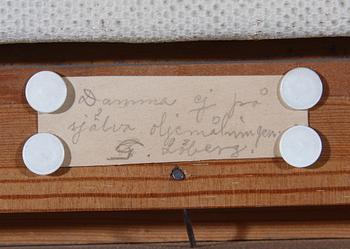 Damma ej på
själva oljemålningen.
G. Löberg.